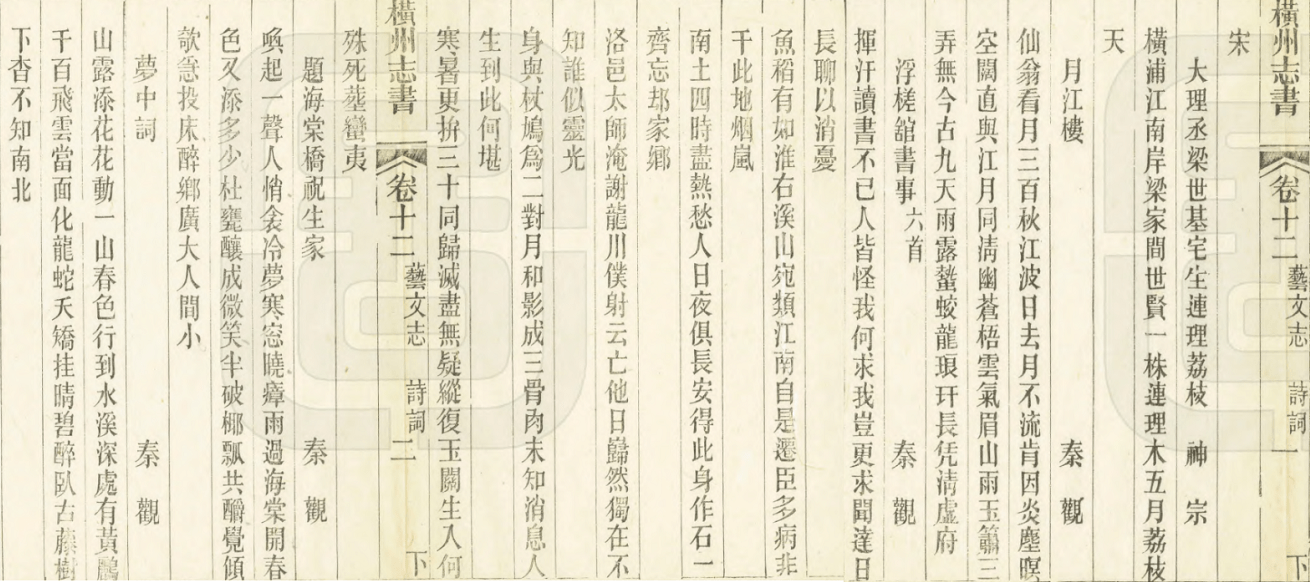 橫州志書 卷十二 藝文志 詩詞 一 下
宋
大理丞梁世基宅生連理荔枝 神宗
橫浦江南岸梁家間世賢一株連理木五月荔枝
天
月江樓 秦觀
仙翁看月三百秋江波日去月不流肯因炎塵暝
空闊直與江月同淸幽蒼梧雲氣眉山雨玉簫三
弄無今古九天雨露蟄蛟龍琅玕長凭淸虛府
浮槎舘書事六首 秦觀
揮汗讀書不已人皆怪我何求我豈更求聞達日
長聊以消憂
魚稻有如淮右溪山宛類江南自是遷臣多病非
干此地烟嵐
南土四時盡熱愁人日夜俱長安得此身作石一
齊忘却家鄉
洛邑太師淹謝龍川僕射云亡他日巋然獨在不
知誰似靈光
身與杖鳩爲二對月和影成三骨肉未知消息人
生到此何堪
寒暑更拚三十同歸滅盡無疑縱復玉關生入何
橫州志書 卷十二 藝文志 詩詞 二 下
殊死葬蠻夷
題海棠橋祝生家 秦觀
喚起一聲人悄衾冷夢寒窓曉瘴雨過海棠開春
色又添多少杜甕釀成微笑半破椰瓢共酌覺傾
欹急投床醉鄉廣大人間小
夢中詞 秦觀
山露添花花動一山春色行到水溪深處有黃鸝
千百飛雲當面化龍蛇夭矯挂晴碧醉臥古藤樹
下杳不知南北